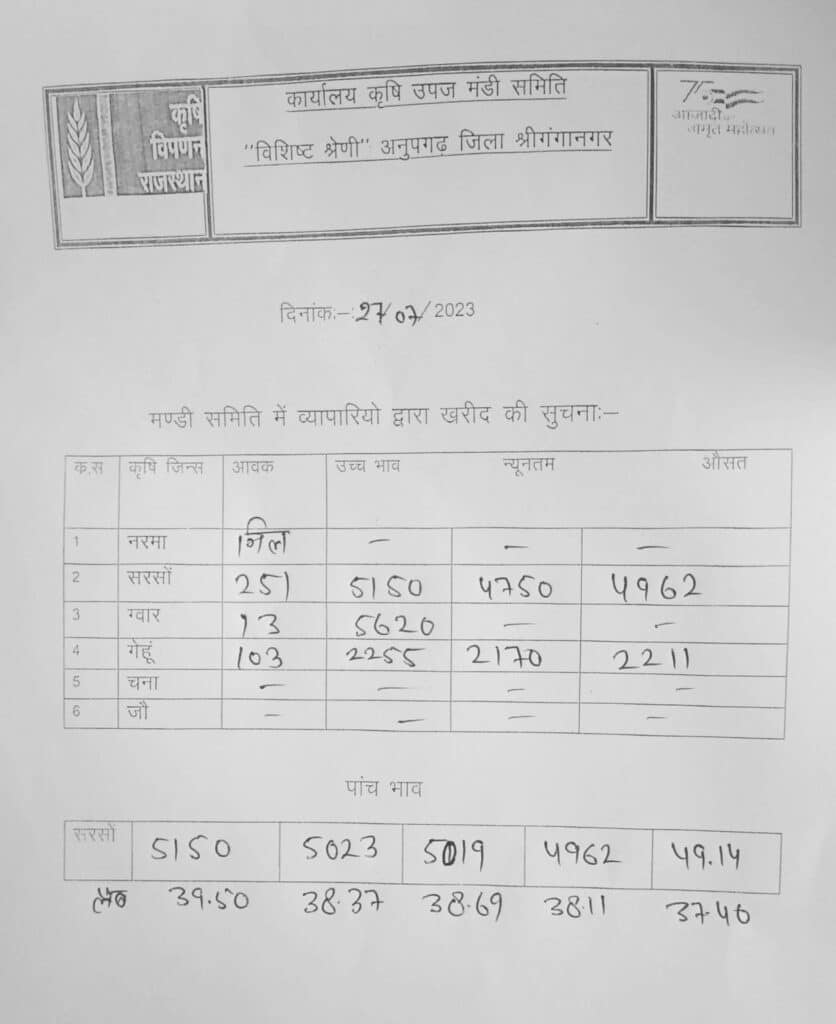 कृषि
विपणन
राजस्थान
कार्यालय कृषि उपज मंडी समिति
"विशिष्ट श्रेणी" अनुपगढ़ जिला श्रीगंगानगर
75
आजादी का
अमृत महोत्सव
दिनांकः–:27/07/2023
मण्डी समिति में व्यापारियो द्वारा खरीद की सुचनाः–
क.स कृषि जिन्स आवक उच्च भाव न्यूनतम औसत
1 नरमा निल – – –
2 सरसों 251 5150 4750 4962
3 ग्वार 13 5620 – –
4 गेहूं 103 2255 2170 2211
5 चना – – – –
6 जौ – – – –
पांच भाव
सरसों 5150 5023 5019 4962 49.14
लैब 39.50 38.37 38.69 38.11 37.46